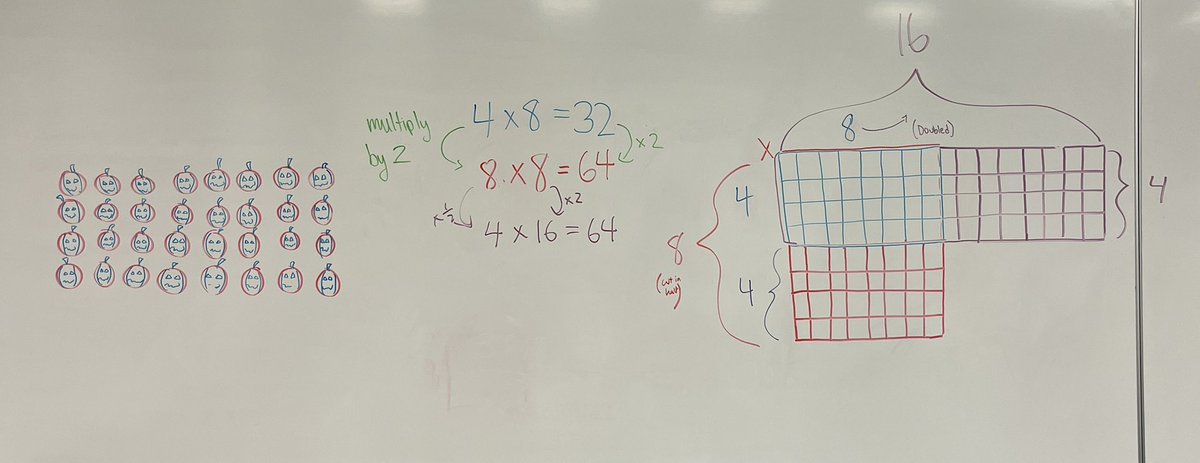 multiply
by 2
4 x 8 = 32
x 2
8 . x 8 = 64
x ½
x 2
4 x 16 = 64
16
8 (Doubled)
X
4
4
8
(cut in
half)
4